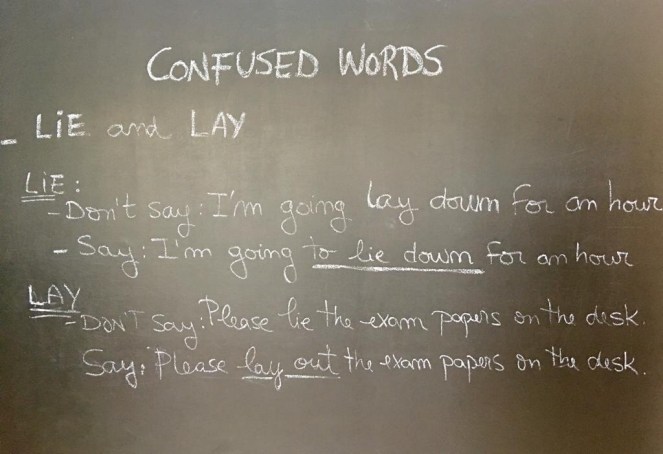 CONFUSED WORDS
- LiE and LAY
LIE:
- Don't say: I'm going lay down for an hour
- Say: I'm going to lie down for an hour
LAY
- DON'T Say: Please lie the exam papers on the desk.
Say: Please lay out the exam papers on the desk.